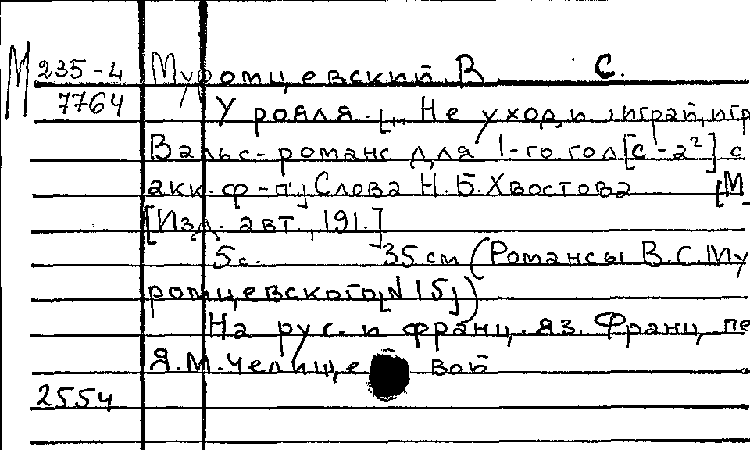 М 235-4 Муромцевский В. С.
7764 У рояля. [... Не уходи, играй, игр
Вальс-романс для 1-го гол[с-а²] с
акк. ф-п.] Слова Н.Б. Хвостова [М
[Изд. авт., 191.]
5 с. 35 см (Романсы В.С. Му
ромцевского [N 15])
На рус. и франц. яз. Франц. пе
Я.М. Челищевой
2554